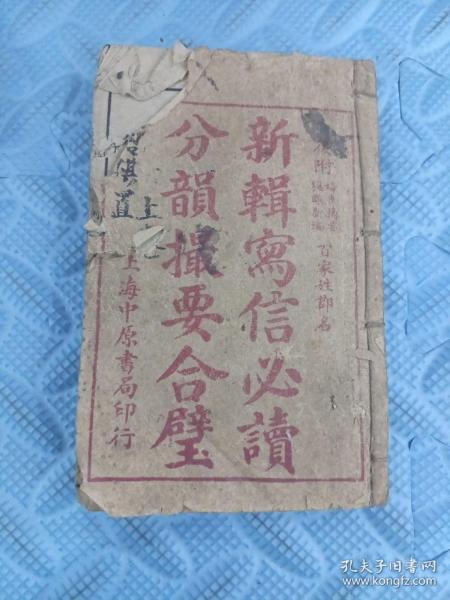 百家姓郡名
新輯寫信必讀
分韻撮要合璧
上海中原書局印行
孔夫子旧书网
www.kongfz.com